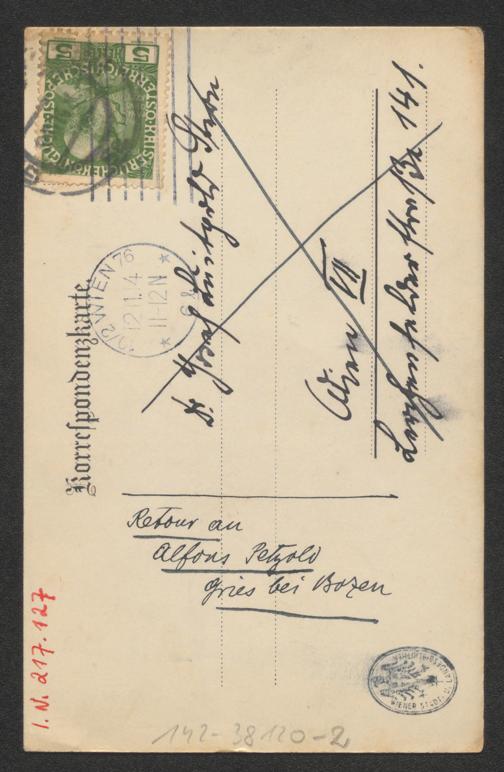 5 5
Korrespondenzkarte
WIEN 76
12.1.14
11-12N
Dr. Josef Luitpold Stern
Wien VII
Lerchenfelderstraße 141.
Retour an
Alfons Petzold
Gries bei Bozen
I.N. 217.127
WIENER STADT-
142-38120-2